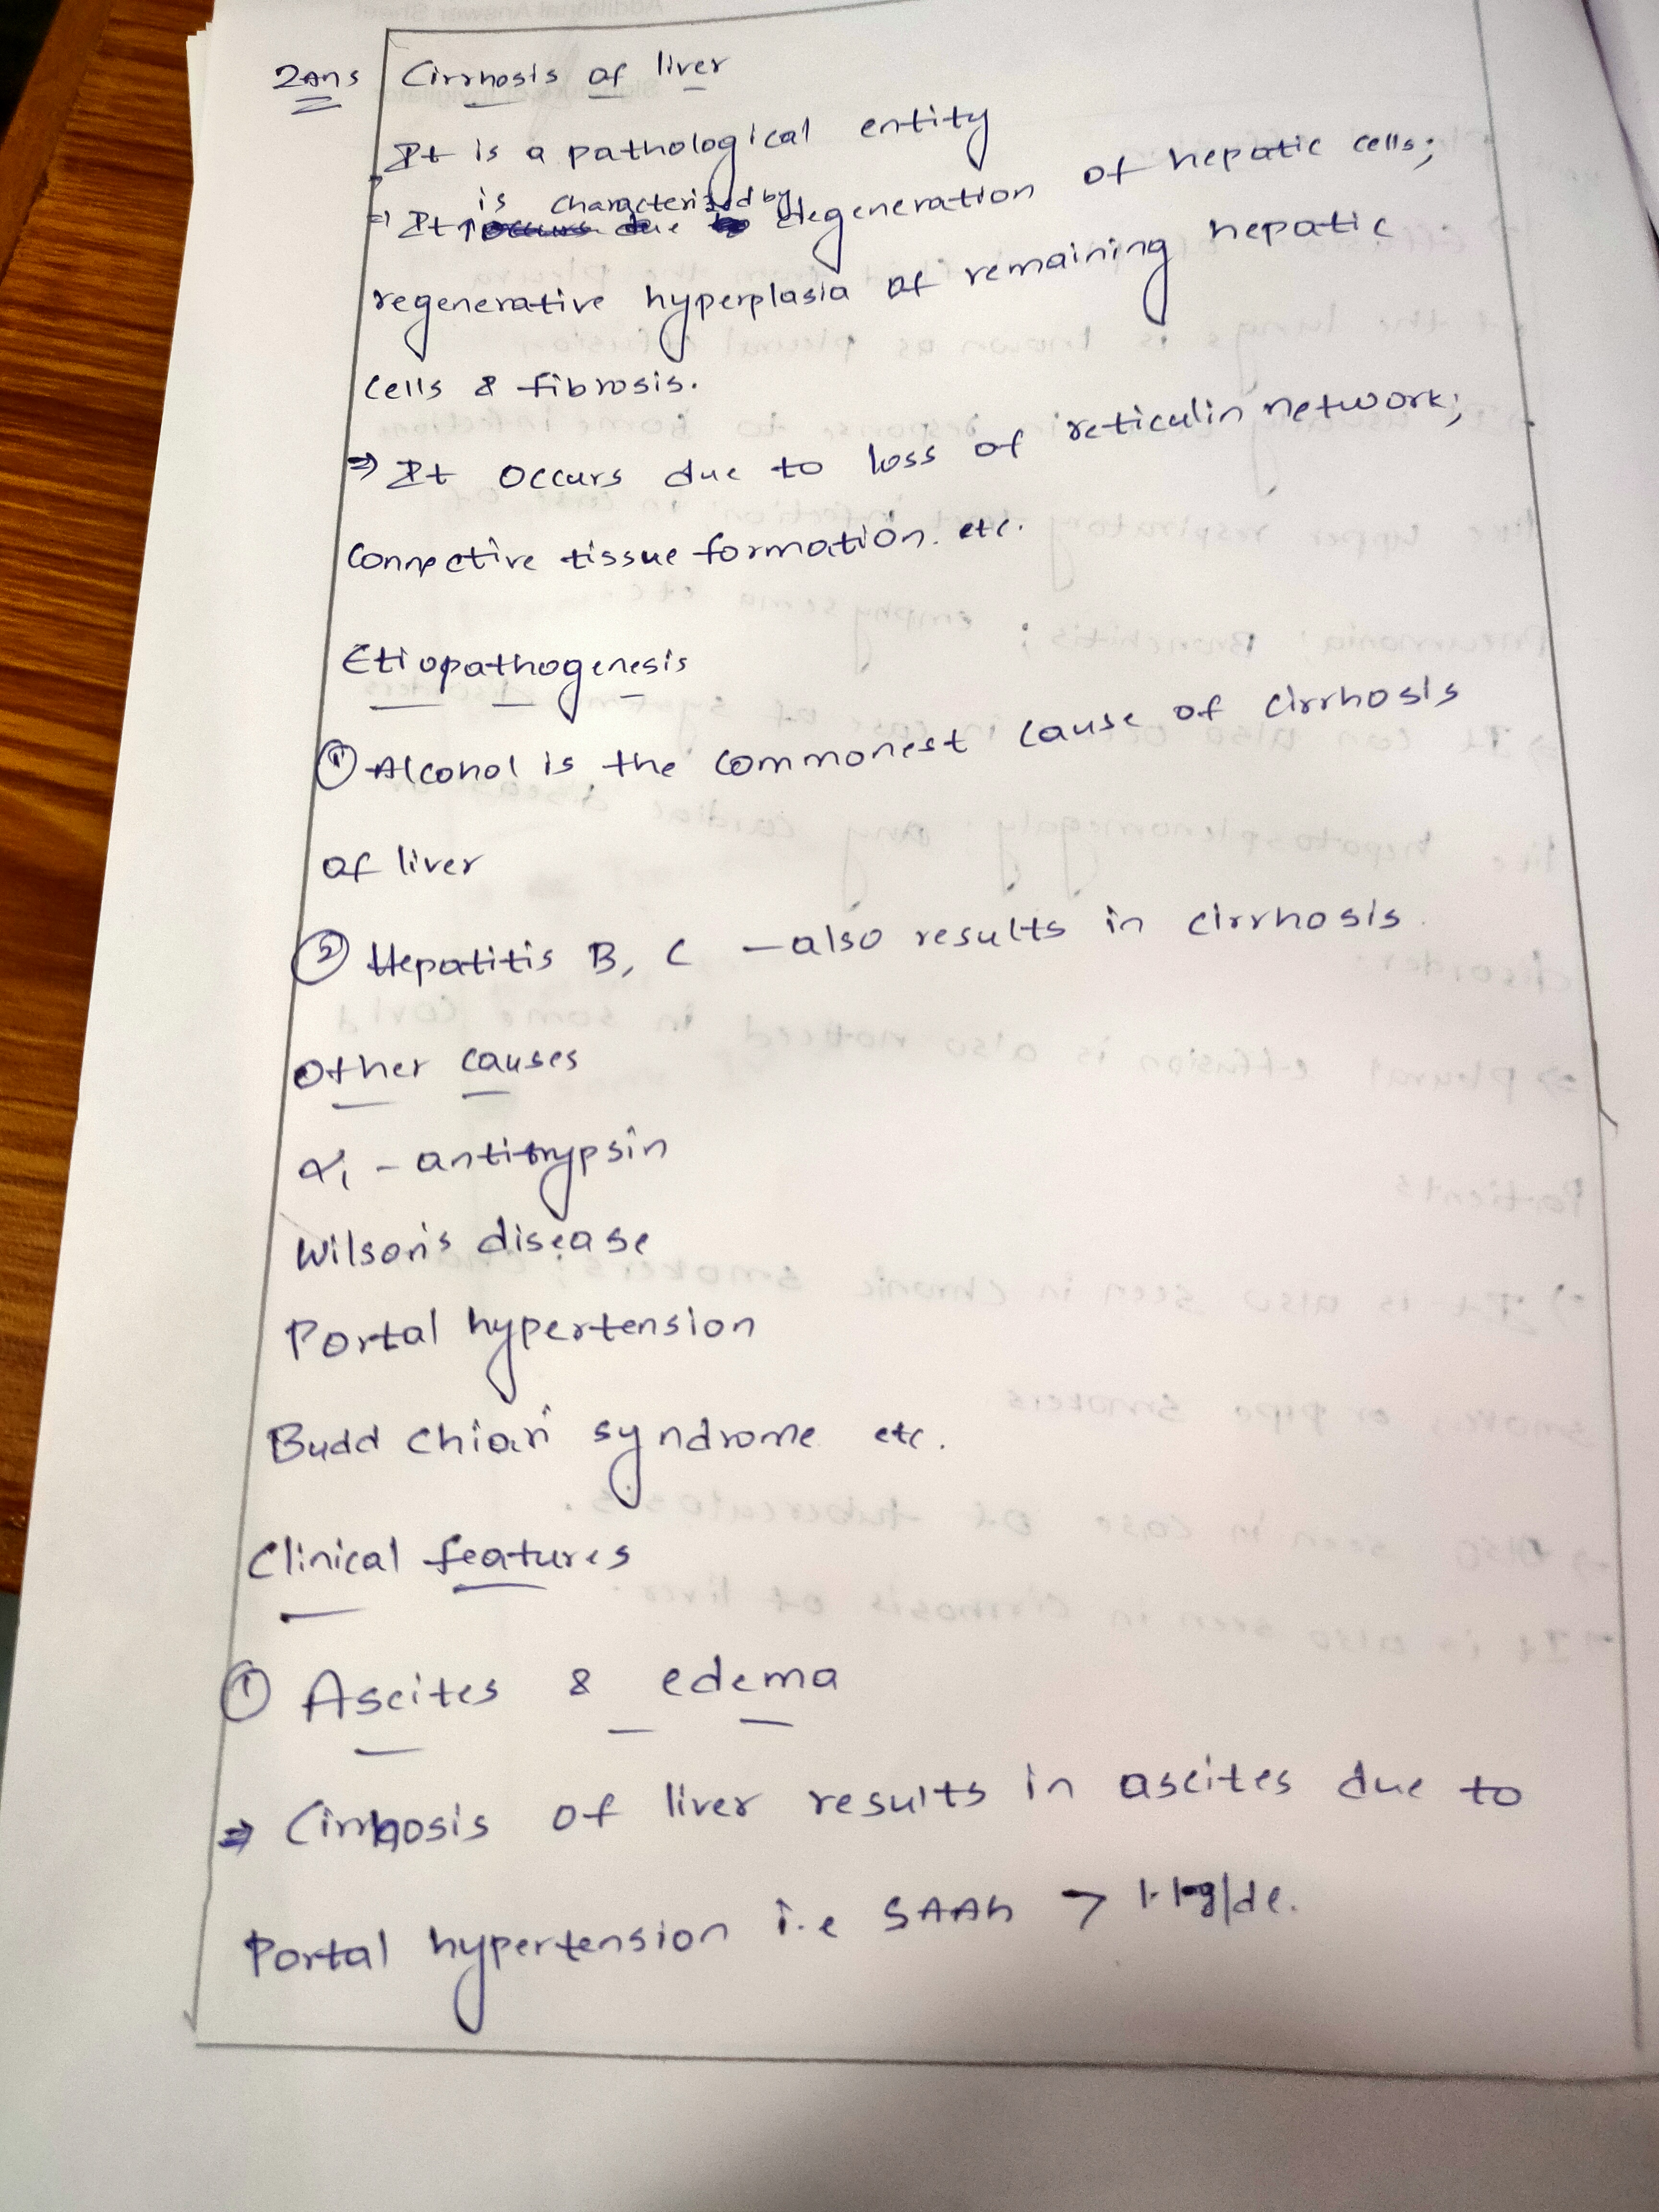 2Ans Cirrhosis of liver
It is a pathological entity
⇒ It is characterized by degeneration of hepatic cells;
regenerative hyperplasia of remaining hepatic
cells & fibrosis.
⇒ It occurs due to loss of reticulin network;
Connective tissue formation. etc.
Etiopathogenesis
① Alcohol is the commonest cause of cirrhosis
of liver
② Hepatitis B, C – also results in cirrhosis.
Other causes
α1 - antitrypsin
Wilson's disease
Portal hypertension
Budd chiari syndrome etc.
Clinical features
① Ascites & edema
⇒ Cirrhosis of liver results in ascites due to
Portal hypertension i.e SAAG > 1.1g/dl.